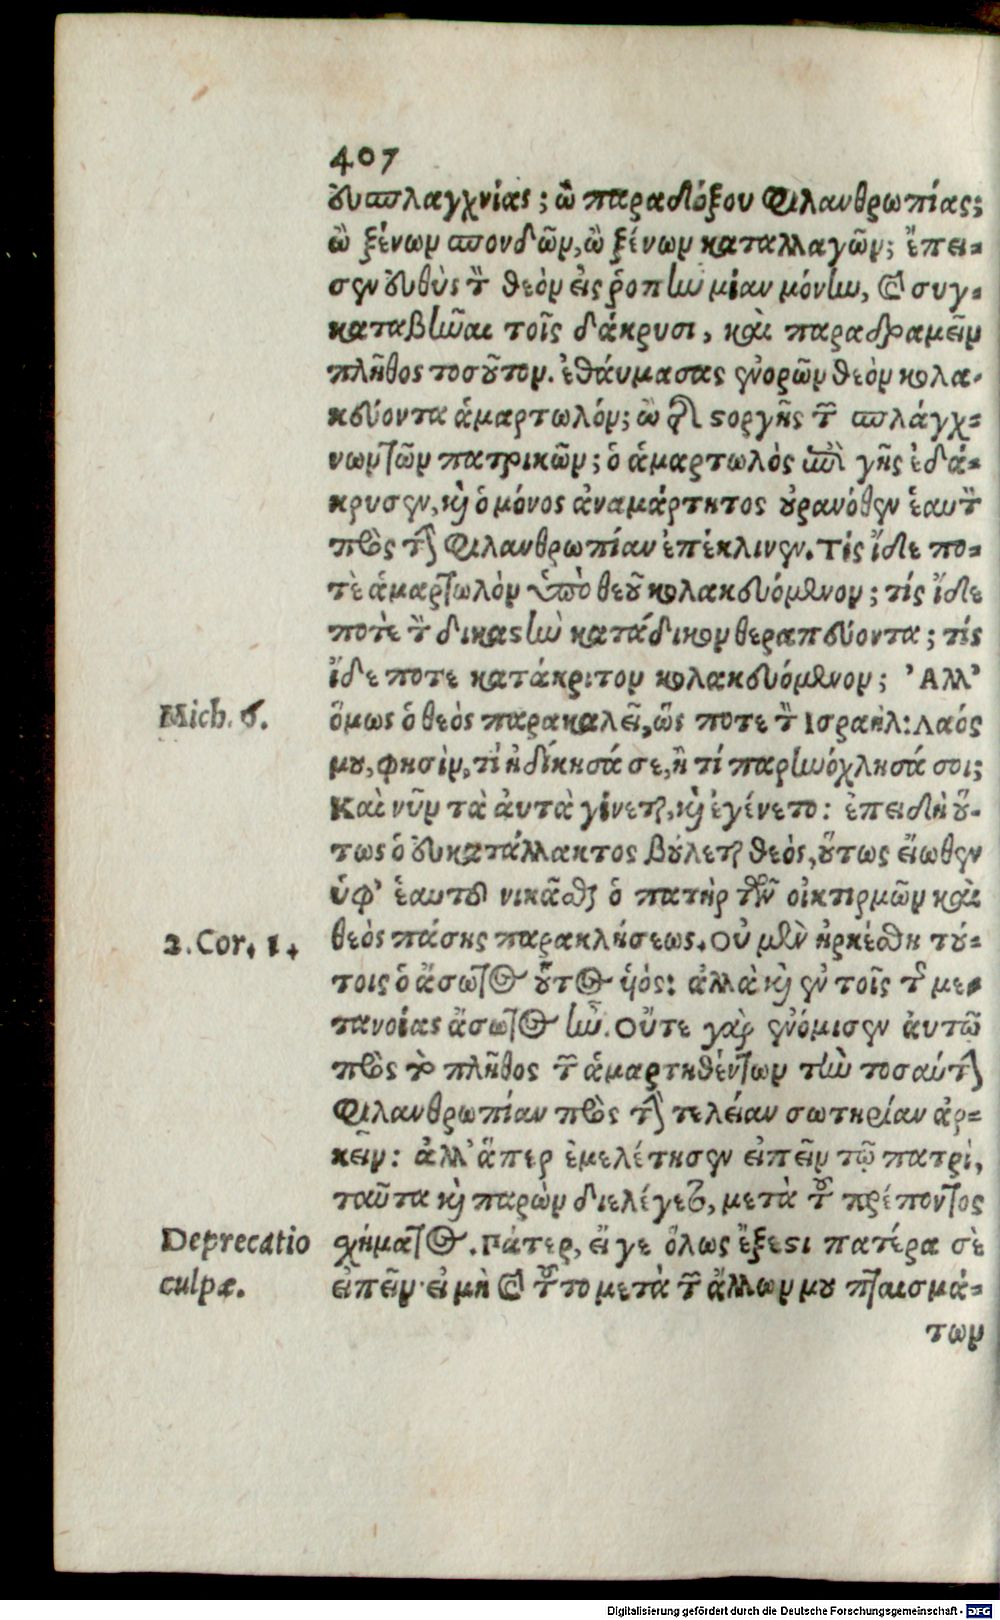 407
εὐσπλαγχνίας; ὢ παραδόξου φιλανθρωπίας;
ὢ ξένων σπονδῶν, ὢ ξένων καταλλαγῶν; ἔπει-
σεν εὐθὺς τὸν θεὸν εἰς ῥοπὴν μίαν μόνην, καὶ συγ-
καταβῆναι τοῖς δάκρυσι, καὶ παραδραμεῖν
πλῆθος τοσοῦτον. ἐθαύμασας ἐνορῶν θεὸν κολα-
κεύοντα ἁμαρτωλόν; ὢ τῆς στοργῆς τῶν σπλάγχ-
νων τῶν πατρικῶν; ὁ ἁμαρτωλὸς ἐπὶ γῆς ἐδά-
κρυσεν, καὶ ὁ μόνος ἀναμάρτητος οὐρανόθεν ἑαυτὸν
πρὸς τὴν φιλανθρωπίαν ἐπέκλινεν. Τίς ἴδε πο-
τὲ ἁμαρτωλὸν ὑπὸ θεοῦ κολακευόμενον; τίς ἴδε
ποτὲ τὸν δικαστὴν κατάδικον θεραπεύοντα; τίς
ἴδε ποτε κατάκριτον κολακευόμενον; Ἀλλ'
Mich. 6.
ὅμως ὁ θεὸς παρακαλεῖ, ὥς ποτε τὸν Ισραὴλ: Λαός
μου, φησὶν, τί ἠδίκησά σε, ἢ τί παρηνόχλησά σοι;
Καὶ νῦν τὰ αὐτὰ γίνεται, καὶ ἐγένετο: ἐπειδὴ οὕ-
τως ὁ εὐκατάλλακτος βούλεται θεὸς, οὕτως εἴωθεν
ὑφ' ἑαυτοῦ νικᾶσθαι ὁ πατὴρ τῶν οἰκτιρμῶν καὶ
2. Cor. 1.
θεὸς πάσης παρακλήσεως. Οὐ μὲν ἠρκέσθη τού-
τοις ὁ ἄσωτος οὗτος υἱός: ἀλλὰ καὶ ἐν τοῖς τῆς με-
τανοίας ἄσωτος ἦν. Οὔτε γὰρ ἐνόμισεν αὐτῷ
πρὸς τὸ πλῆθος τῶν ἁμαρτηθέντων τὴν τοσαύτην
φιλανθρωπίαν πρὸς τὴν τελείαν σωτηρίαν ἀρ-
κεῖν: ἀλλ' ἅπερ ἐμελέτησεν εἰπεῖν τῷ πατρί,
ταῦτα καὶ παρὼν διελέγετο, μετὰ τοῦ πρέποντος
Deprecatio
culpæ.
σχήματος. Πάτερ, εἴ γε ὅλως ἔξεστι πατέρα σὲ
εἰπεῖν· εἰ μὴ καὶ τοῦτο μετὰ τῶν ἄλλων μου πταισμά-
των
Digitalisierung gefördert durch die Deutsche Forschungsgemeinschaft - DFG